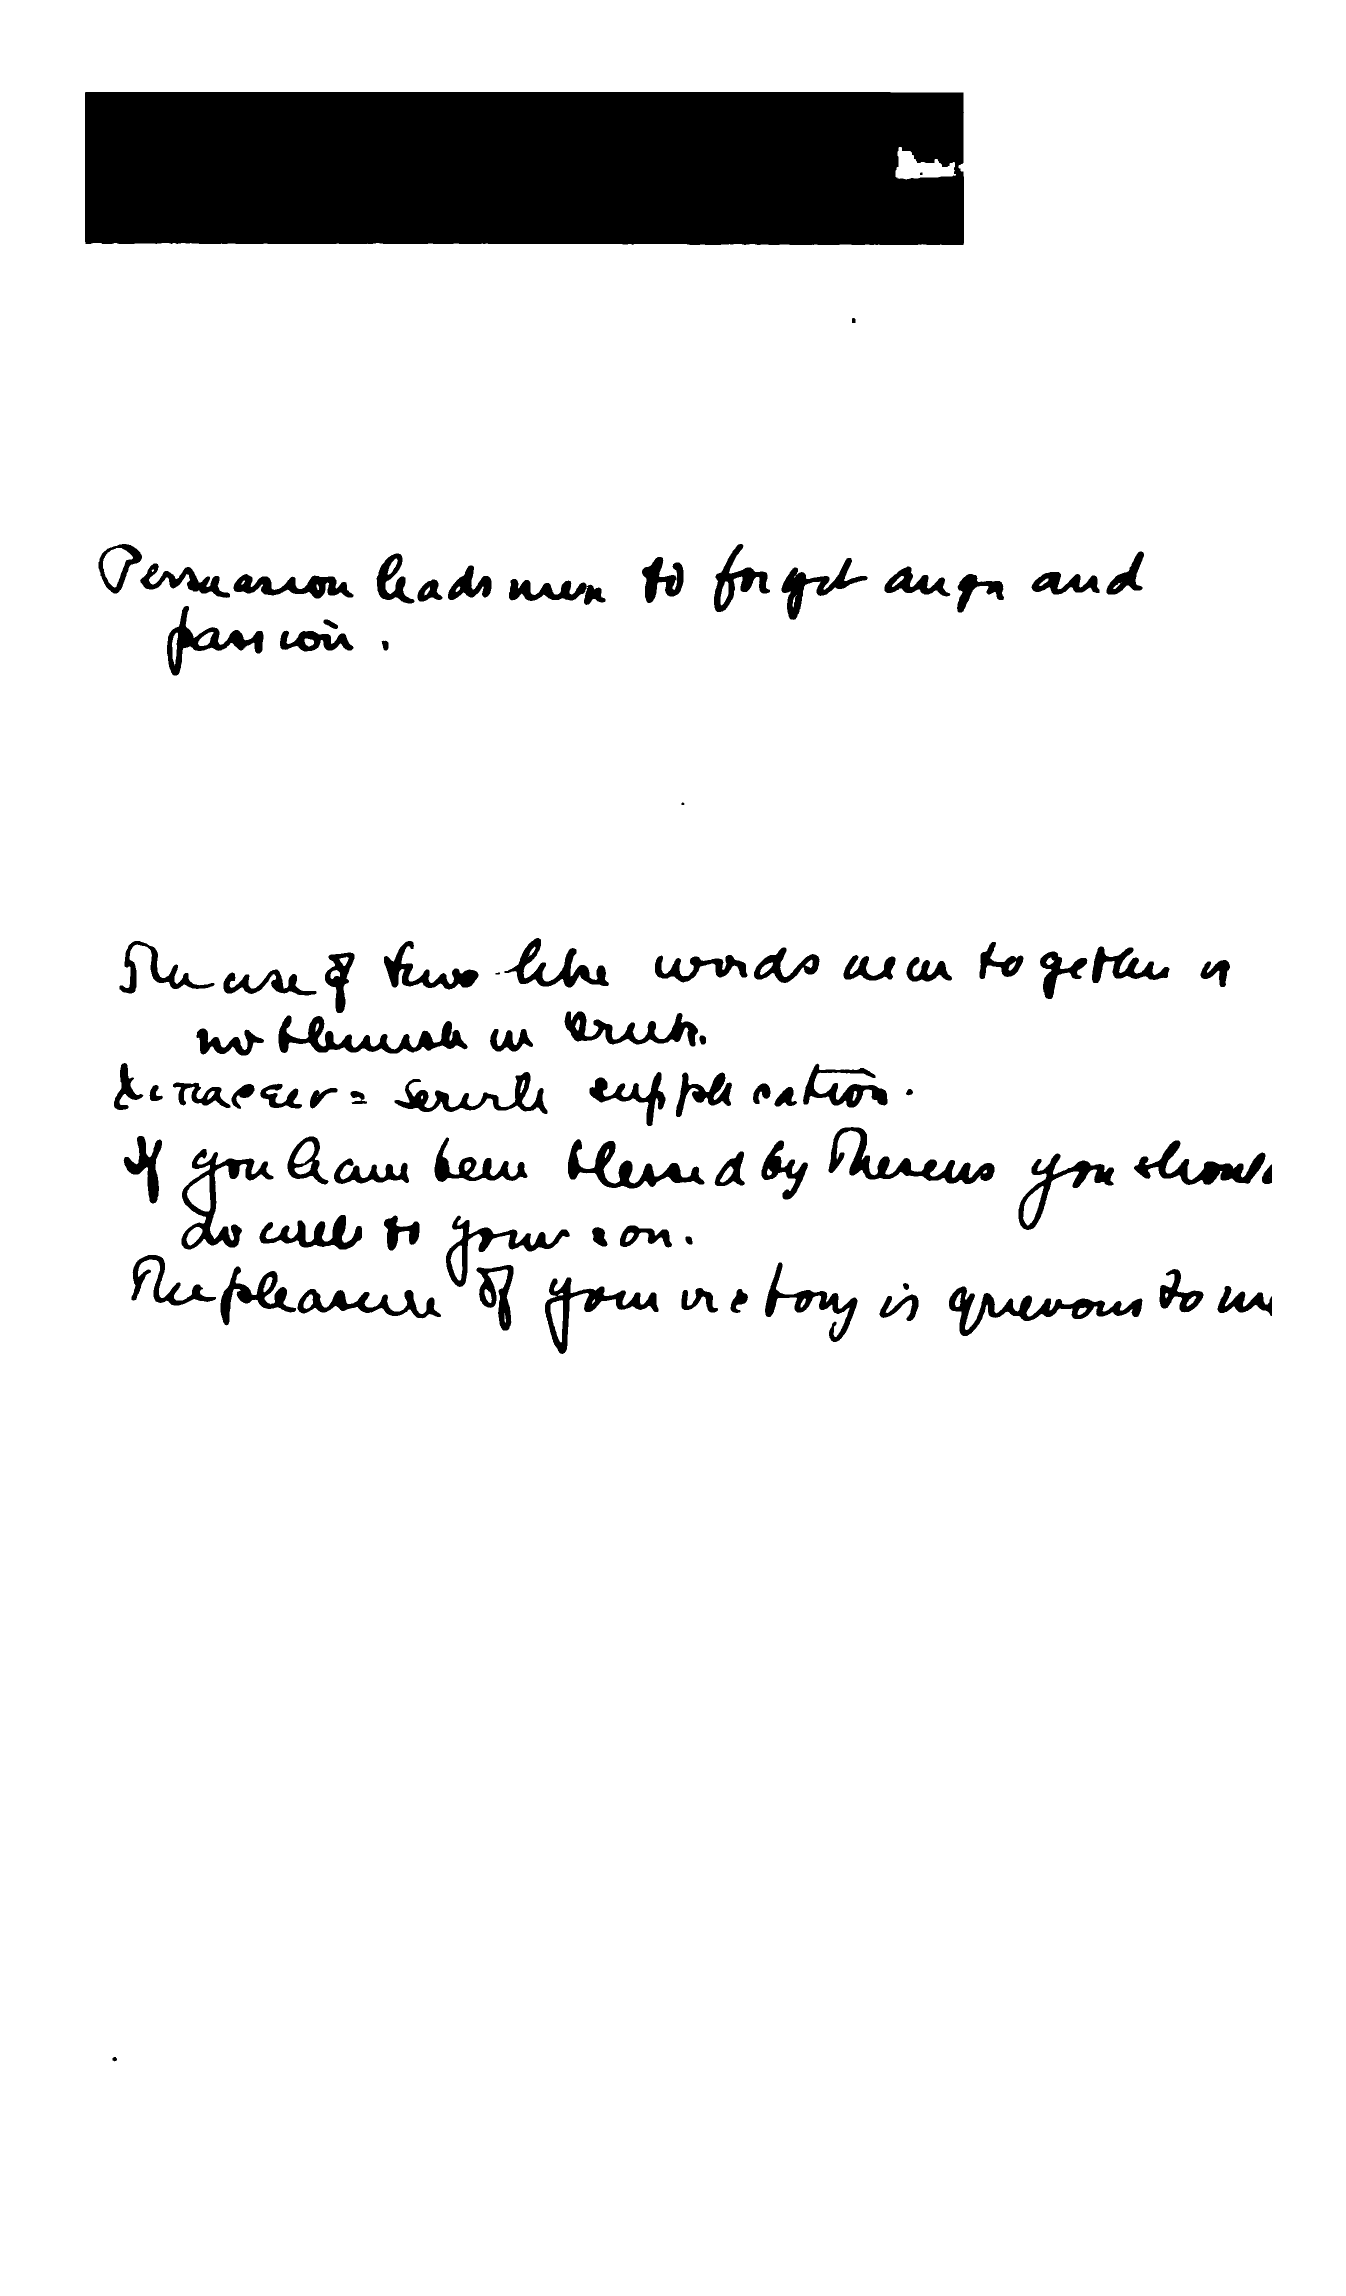 Persuasion leads men to forget anger and
passion.
The use of two like words near together is
no blemish in Greek.
λιπαρειν = servile supplication.
If you have been blessed by Theseus you should
do well to your son.
The pleasure of your victory is grievous to me